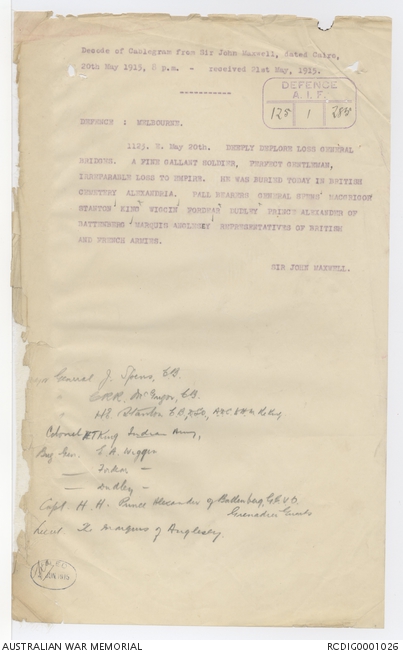 Decode of Cablegram from Sir John Maxwell, dated Cairo,
20th May 1915, 8 p.m. - received 21st May, 1915.
DEFENCE
A.I.F.
125 1
DEFENCE : MELBOURNE.
1123. E. May 20th. DEEPLY DEPLORE LOSS GENERAL
BRIDGES. A FINE GALLANT SOLDIER, PERFECT GENTLEMAN,
IRREPARABLE LOSS TO EMPIRE. HE WAS BURIED TODAY IN BRITISH
CEMETERY ALEXANDRIA. PALL BEARERS GENERAL SPENS MACGRIGOR
STANTON KING WIGGIN FORDHAM DUDLEY PRINCE ALEXANDER OF
BATTENBERG MARQUIS ANGLESEY REPRESENTATIVES OF BRITISH
AND FRENCH ARMIES.
SIR JOHN MAXWELL.
General J. Spens, C.B.
McGrigor, C.B.
H.E. Stanton C.B.
Colonel King Indian Army,
Brig Gen. E. A. Wiggin
Dudley -
Capt H. H. Prince Alexander of Battenberg, G.C.V.O.
Grenadier Guards
Lieut. The Marquis of Anglesey.
AUSTRALIAN WAR MEMORIAL
RCDIG0001026